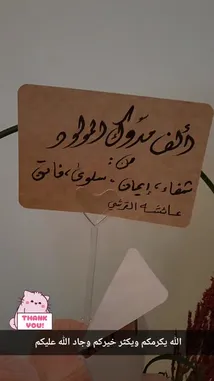 ألف مبروك المولود
من:
شفاء، إيمان، سلوى، فاتن
عائشة القرشي
THANK YOU!
الله يكرمكم ويكثر خيركم وجاد الله عليكم